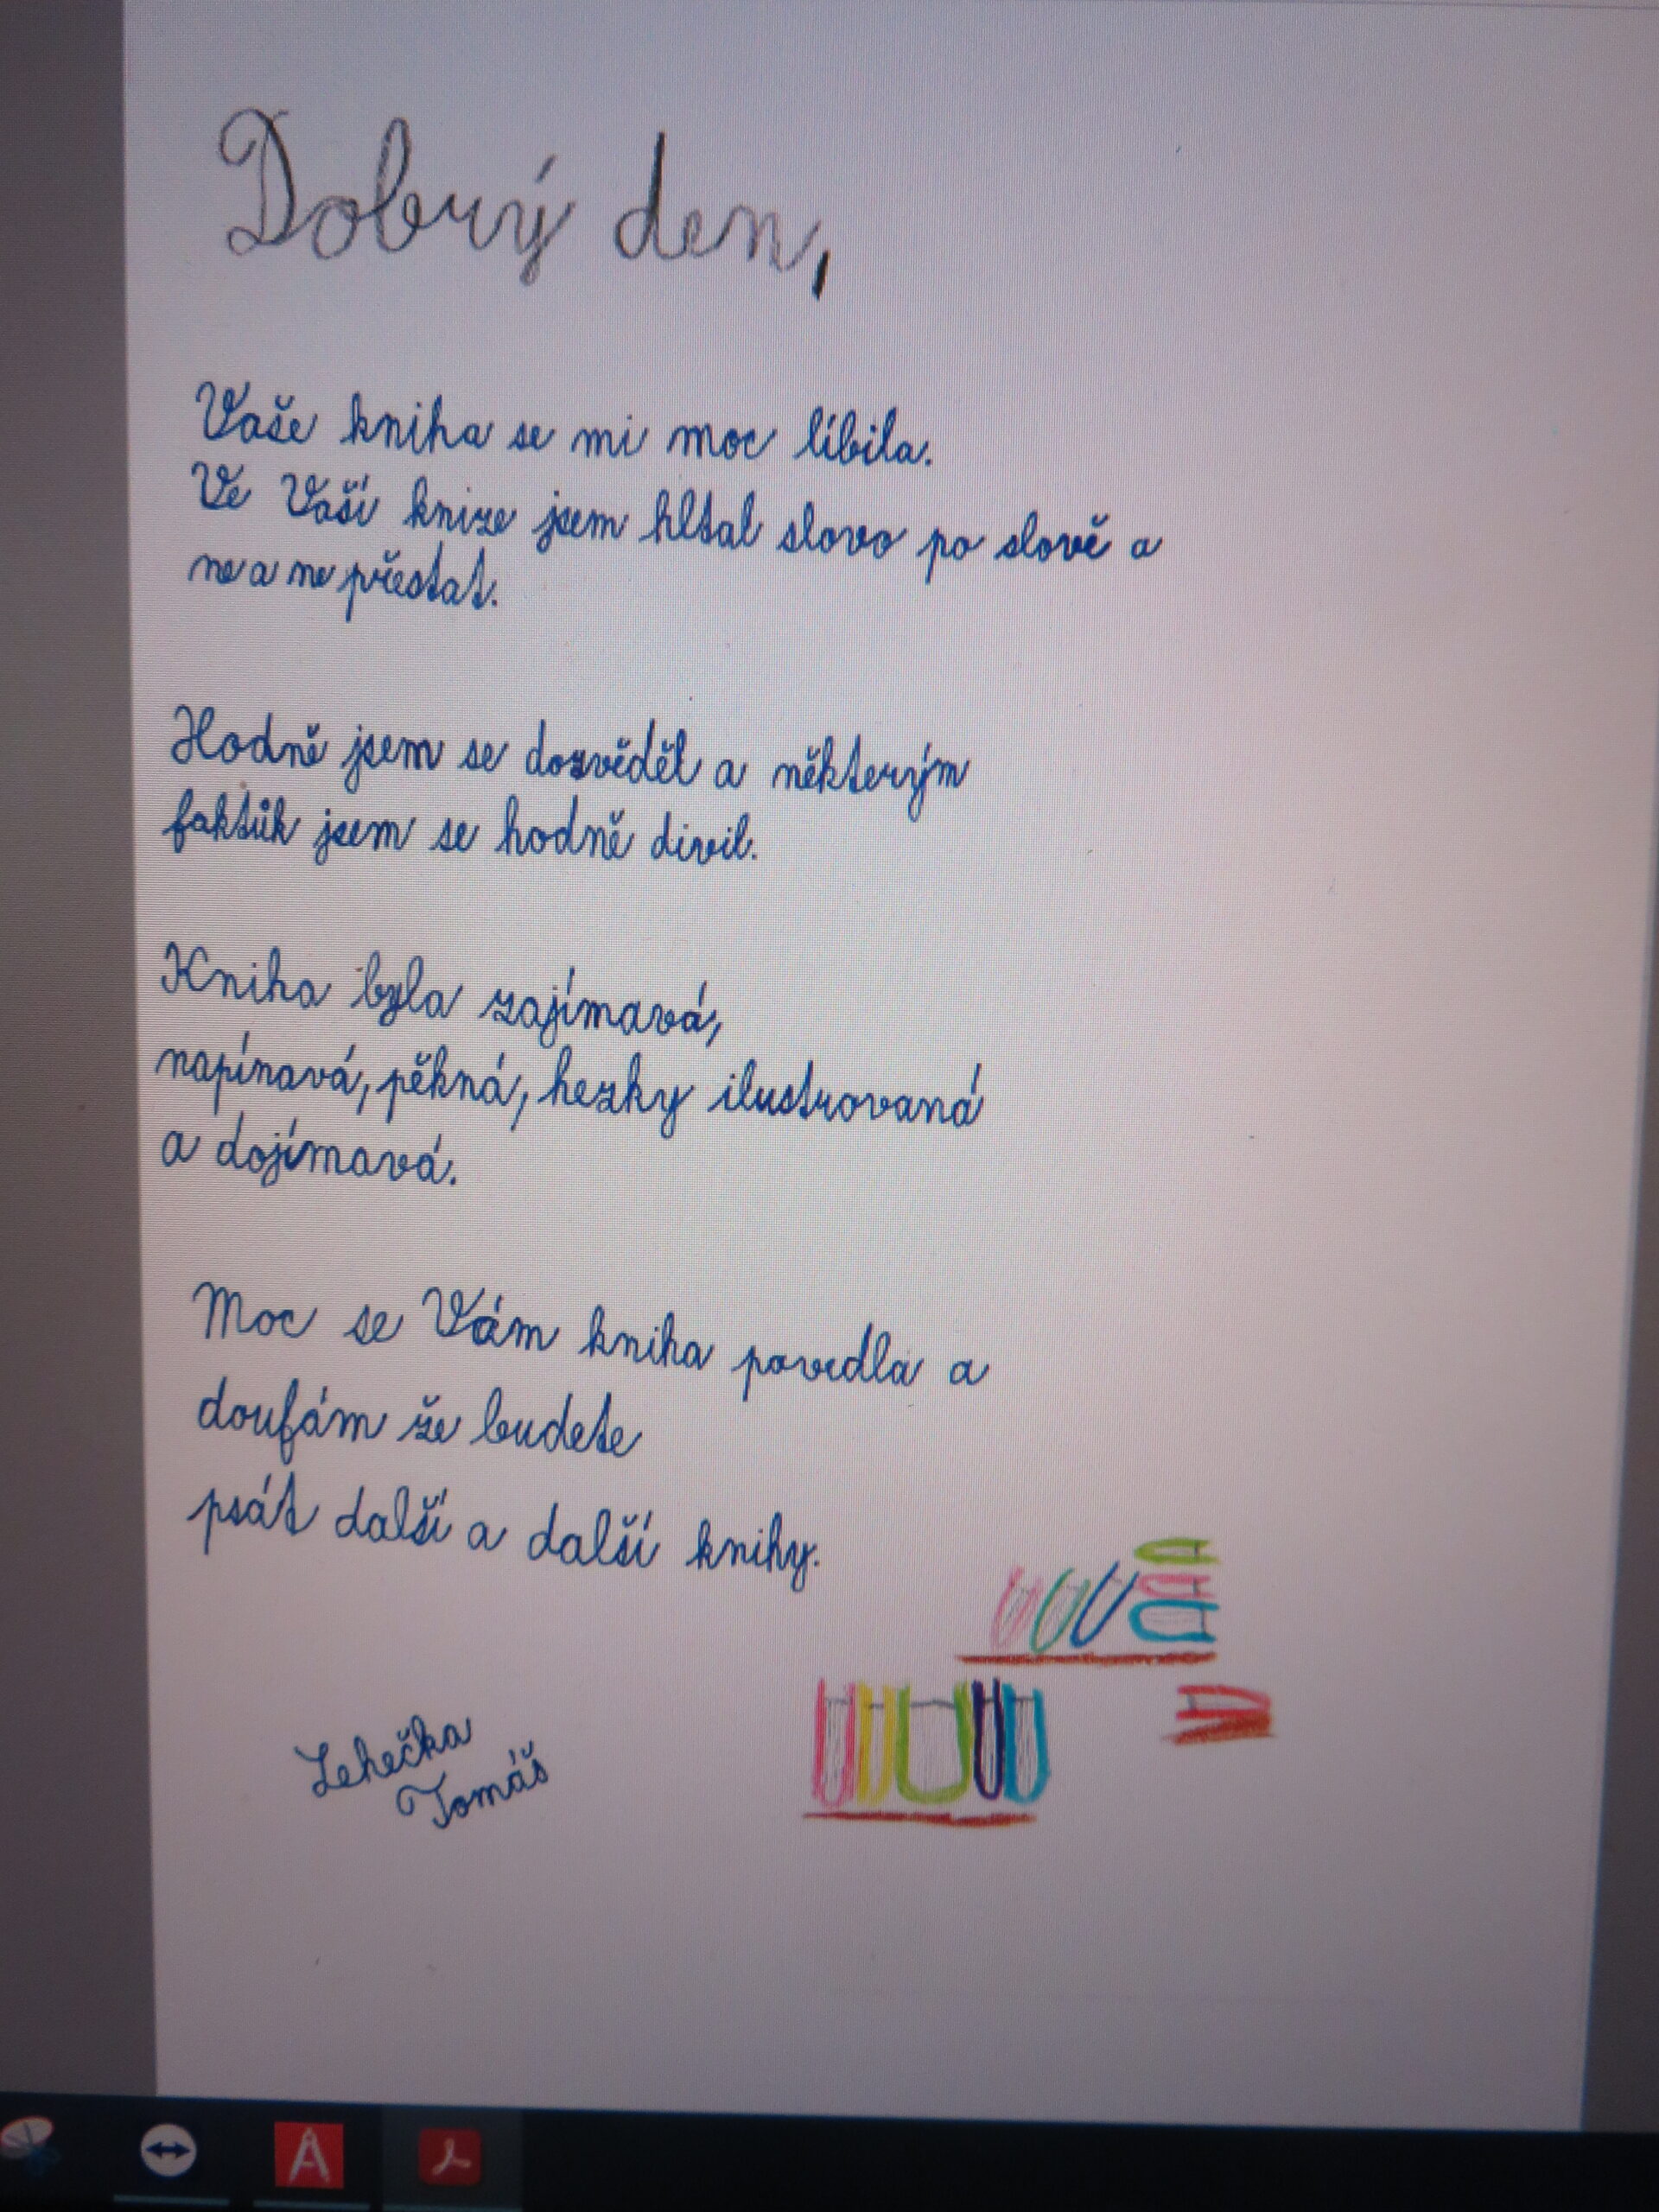 Dobrý den,
Vaše kniha se mi moc líbila.
Ve Vaší knize jsem hltal slovo po slově a
ne a ne přestat.
Hodně jsem se dozvěděl a některým
faktům jsem se hodně divil.
Kniha byla zajímavá,
napínavá, pěkná, hezky ilustrovaná
a dojímavá.
Moc se Vám kniha povedla a
doufám že budete
psát další a další knihy.
Lehečka
Tomáš